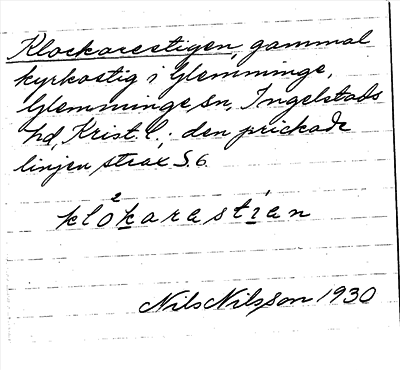 Klockarestigen, gammal
kyrkostig i Glemminge,
Glemminge sn, Ingelstads
hd, Krist. l.; den prickade
linjen strax S. 6.
klo²karastian
Nils Nilsson 1930